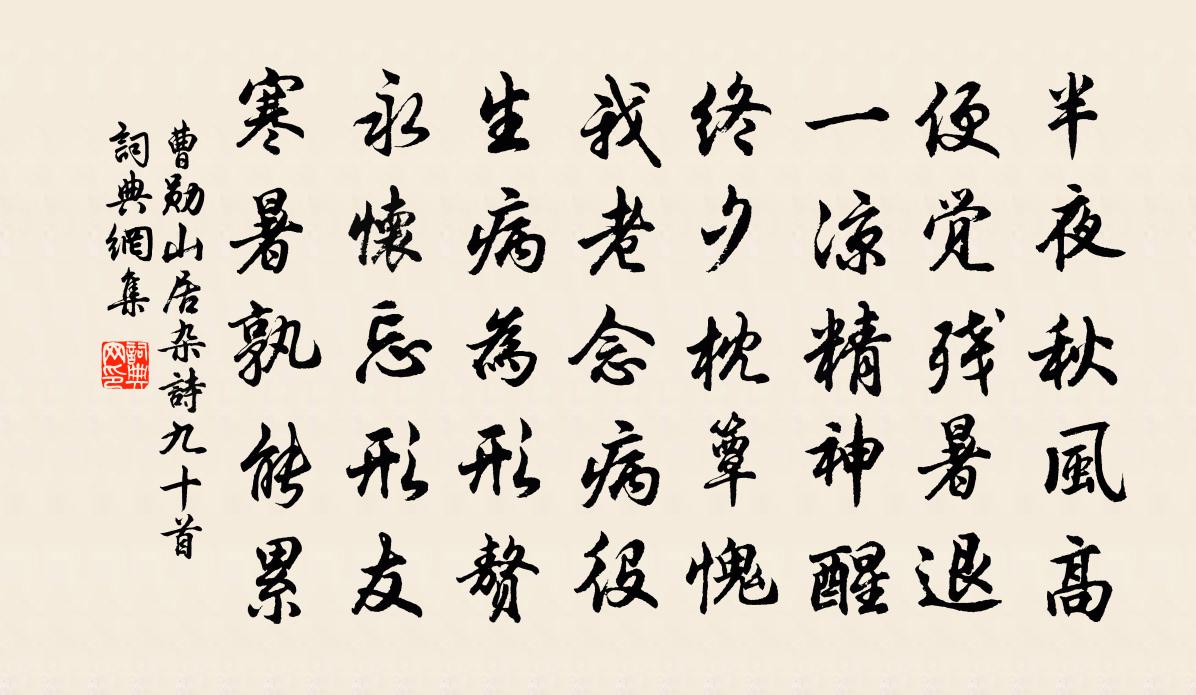 半夜秋風高
便觉残暑退
一涼精神醒
终夕枕簟愧
我老念病役
生病為形赘
永懷忘形友
寒暑孰能累
曹勋山居杂詩九十首
詞典網集
詞典网印